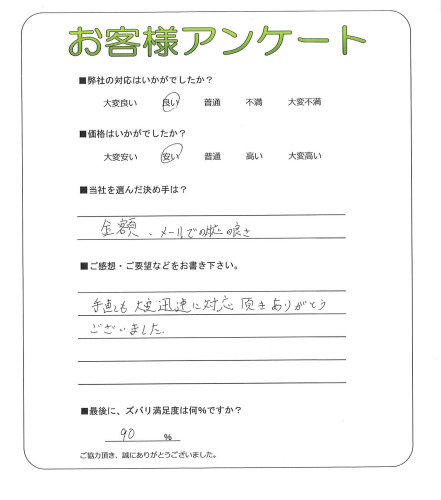 お客様アンケート
■弊社の対応はいかがでしたか？
大変良い 良い 普通 不満 大変不満
■価格はいかがでしたか？
大変安い 安い 普通 高い 大変高い
■当社を選んだ決め手は？
金額、メールでの対応の良さ
■ご感想・ご要望などをお書き下さい。
も大変迅速に対応頂きありがとう
ございました
■最後に、ズバリ満足度は何%ですか？
90 %
ご協力頂き、誠にありがとうございました。